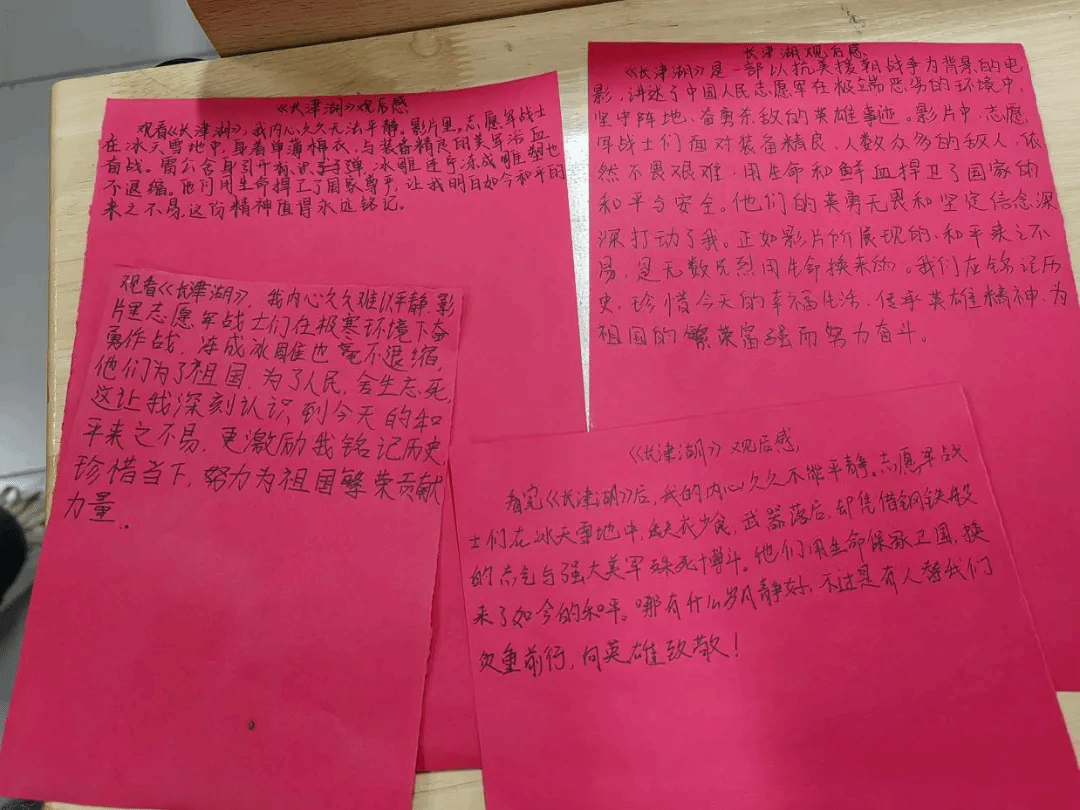 《长津湖》观后感
观看《长津湖》,我内心久久无法平静。影片里,志愿军战士
在冰天雪地中,身着单薄棉衣,与装备精良的美军浴血
奋战。雷公舍身引开标识弹,冰雕连宁冻成雕塑也
不退缩。他们用生命捍卫了国家尊严,让我明白如今和平的
来之不易,这份精神值得永远铭记。
长津湖观后感
《长津湖》是一部以抗美援朝战争为背景的电
影,讲述了中国人民志愿军在极端恶劣的环境中,
坚守阵地、奋勇杀敌的英雄事迹。影片中,志愿
军战士们面对装备精良、人数众多的敌人,依
然不畏艰难,用生命和鲜血捍卫了国家的
和平与安全。他们的英勇无畏和坚定信念深
深打动了我。正如影片所展现的、和平来之不
易,是无数先烈用生命换来的。我们应铭记历
史,珍惜今天的幸福生活,传承英雄精神,为
祖国的繁荣富强而努力奋斗。
观看《长津湖》,我内心久久难以平静,影
片里志愿军战士们在极寒环境下奋
勇作战,冻成冰雕也毫不退缩,
他们为了祖国,为了人民,舍生忘死,
这让我深刻认识到今天的和
平来之不易,更激励我铭记历史
珍惜当下,努力为祖国繁荣贡献
力量.
《长津湖》观后感
看完《长津湖》后,我的内心久久不能平静。志愿军战
士们在冰天雪地中,缺衣少食,武器落后,却凭借钢铁般
的志气与强大美军殊死搏斗。他们用生命保家卫国,换
来了如今的和平。哪有什么岁月静好,不过是有人替我们
负重前行,向英雄致敬!